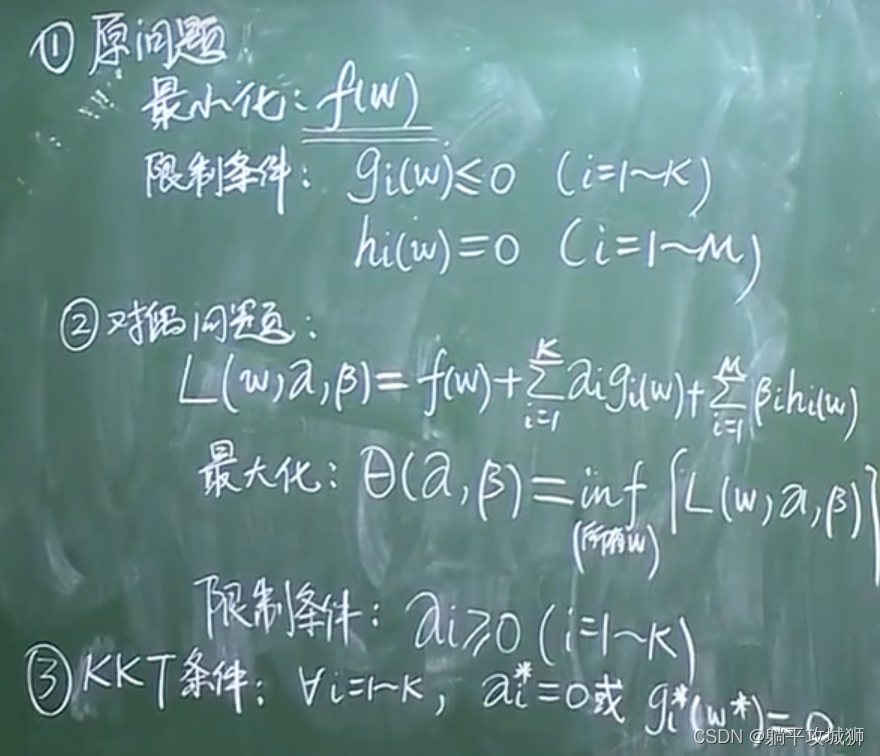 ① 原问题
最小化: f(w)
限制条件: gi(w)≤0 (i=1~K)
hi(w)=0 (i=1~M)
② 对偶问题:
L(w,α,β)=f(w)+∑_{i=1}^{K}αigi(w)+∑_{i=1}^{M}βihi(w)
最大化: θ(α,β)=inf{L(w,α,β)}
(所有w)
限制条件: αi≥0 (i=1~K)
③ KKT条件: ∀i=1~K, αi*=0或 gi*(w*)=0
CSDN @躺平攻城狮